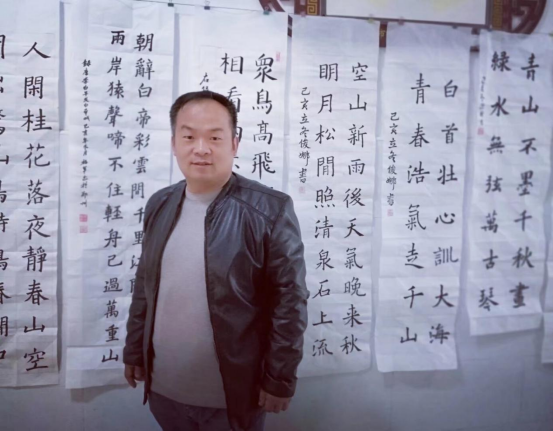 青山不墨千秋畫
綠水無弦萬古琴
白首壯心訓大海
青春浩氣走千山
己亥立冬俊 書
空山新雨後天氣晚来秋
明月松間照清泉石上流
己亥立冬俊 書
衆鳥高飛
相看
朝辭白帝彩雲間千里江
兩岸猿聲啼不住輕舟已過萬重山
人閑桂花落夜靜春山空
山鳥時鳴春澗